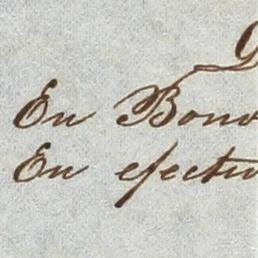 En Bono
En efectiv